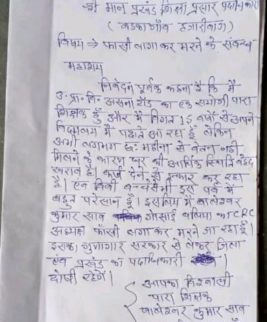 श्री मान प्रखंड शिक्षा प्रसार पदाधिकारी
(बड़कागाँव हजारीबाग)
विषय → फांसी लगा कर मरने के संबन्ध
महाशय
निवेदन पूर्वक कहना है कि मैं
उ. प्रा. वि. का एक सहयोगी पारा
शिक्षक हूँ और मैं विगत 15 वर्षों से अपने
विद्यालय में पढ़ाते आ रहा हूँ लेकिन
अभी लगभग छः महीना से वेतन नहीं
मिलने के कारण घर की आर्थिक स्थिति बहुत
खराब है। कर्ज देने से इन्कार कर रहा
है। एवं बच्चे भी इस पर्व में
बहुत परेसान है। इसलिए मैं बालेश्वर
कुमार साव गोसाई बलिया का CRC
अध्यक्ष फांसी लगा कर मरने जा रहा हूँ।
इसका गुनागार सरकार से लेकर जिला
एवं प्रखंड का पदाधिकारी
दोषी रहेगें।
आपका विश्वासी
पारा शिक्षक
बालेश्वर कुमार साव